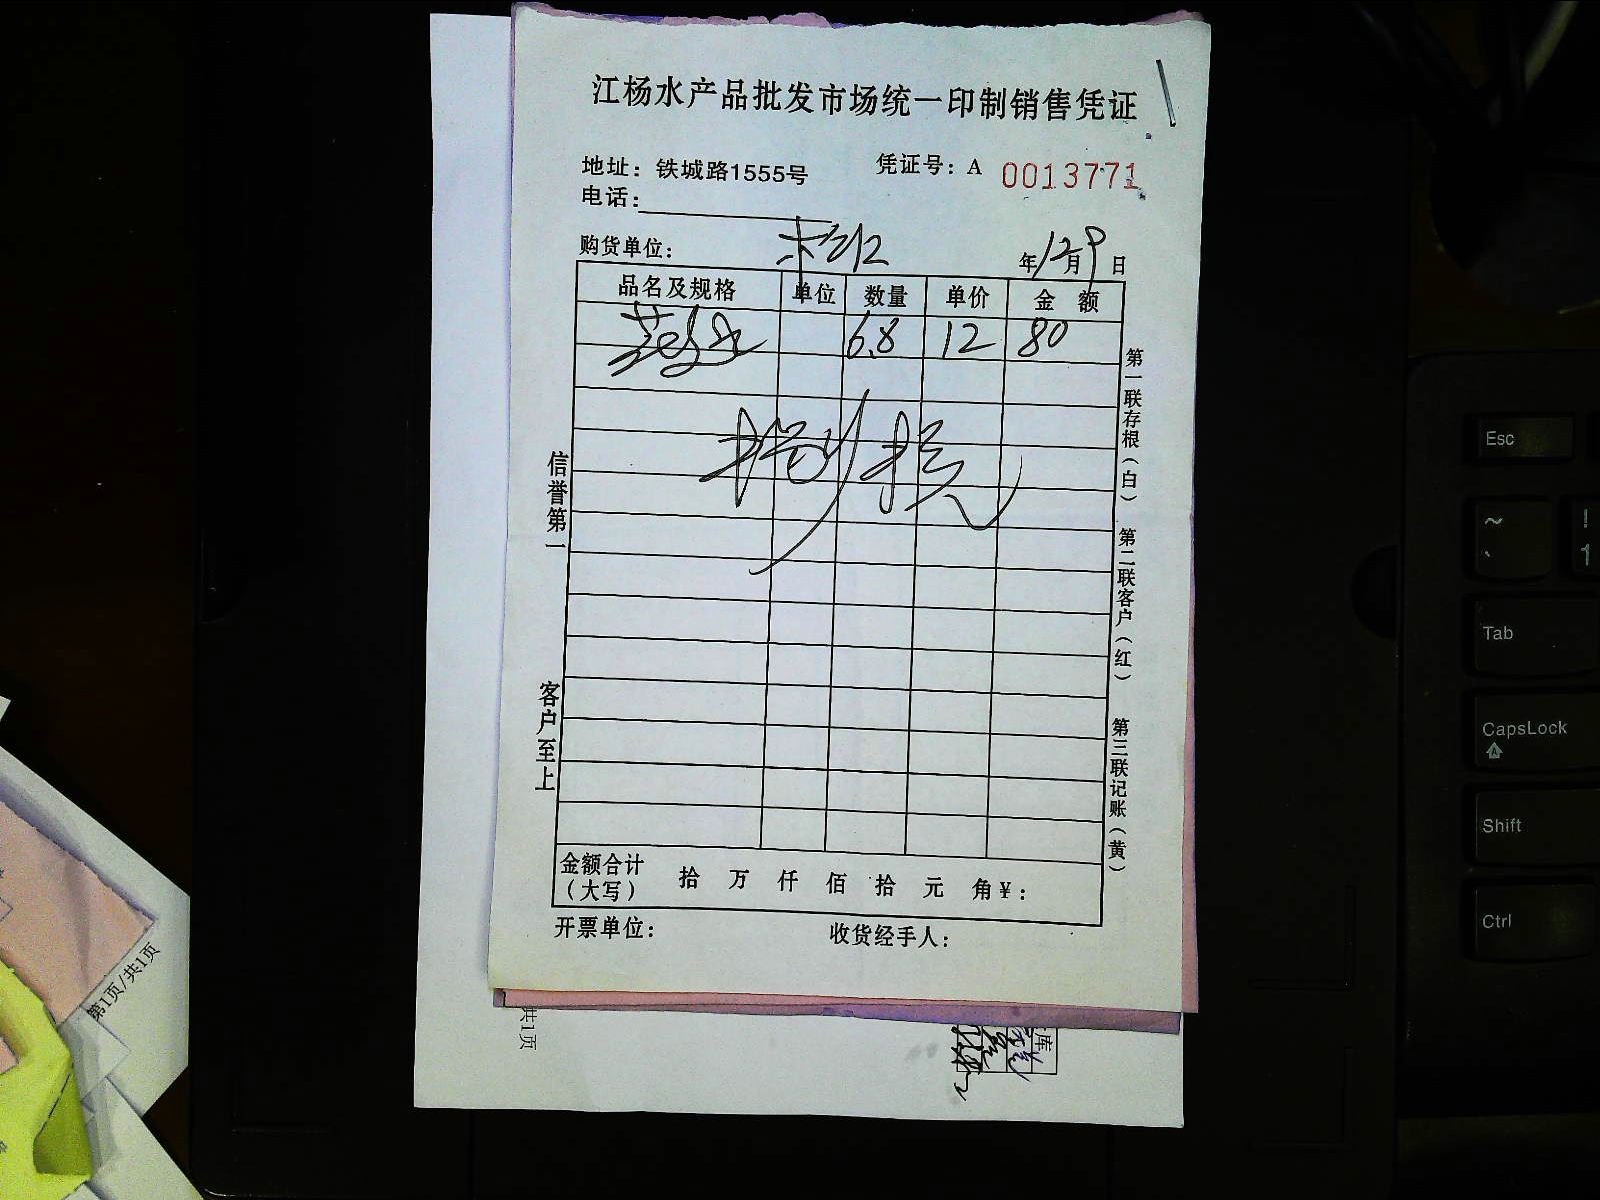 江杨水产品批发市场统一印制销售凭证
地址：铁城路1555号
凭证号：A 0013771
电话：
购货单位：
年12月9日
品名及规格 单位 数量 单价 金额
6.8 12 80
信誉第一
客户至上
第一联存根（白）
第二联客户（红）
第三联记账（黄）
金额合计（大写） 拾 万 仟 佰 拾 元 角 ¥：
开票单位：
收货经手人：
第1页/共1页
共1页
库
Esc
~
`
!
1
Tab
CapsLock
Shift
Ctrl